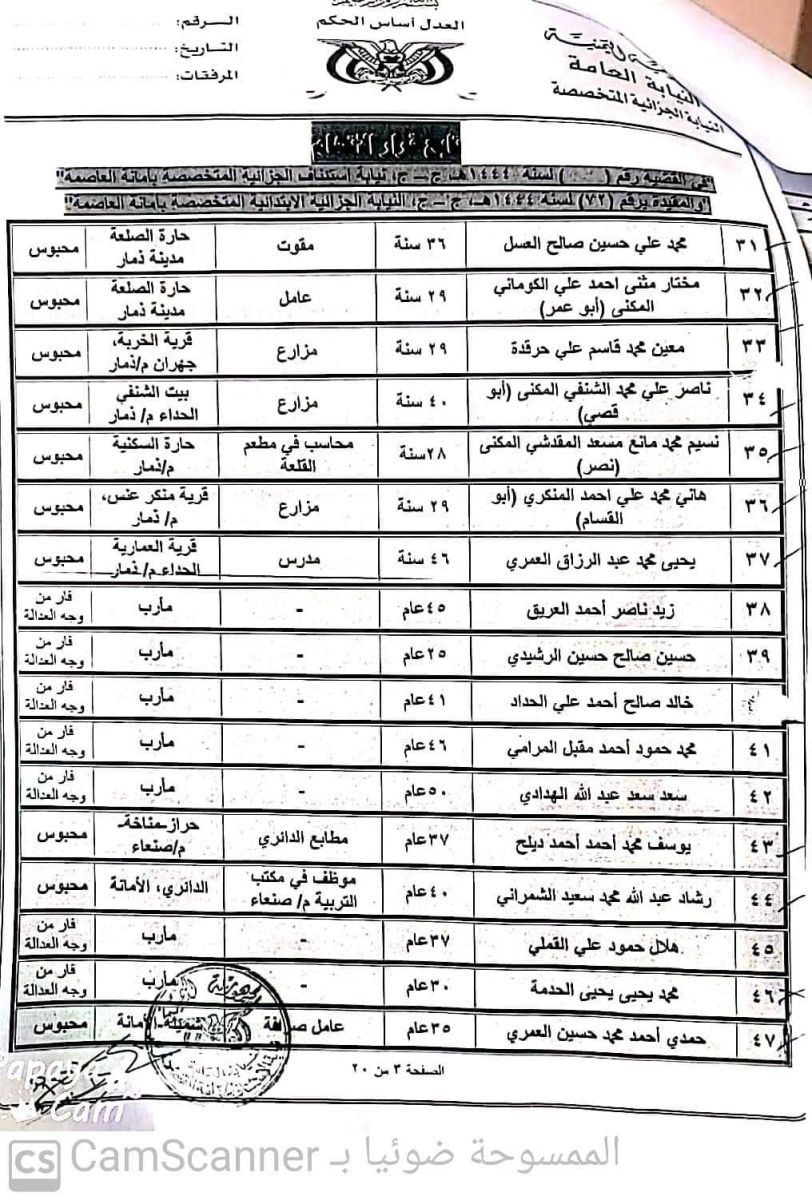 العدل أساس الحكم
الرقم:
التاريخ:
المرفقات:
النيابة العامة
النيابة الجزائية المتخصصة
"في القضية رقم ( ) لسنة ١٤٤٤هـ، ج – ج، نيابة استئناف الجزائية المتخصصة بأمانة العاصمة"
"والمقيدة برقم (٧٢) لسنة ١٤٤٤هـ، ج – ج، النيابة الجزائية الابتدائية المتخصصة بأمانة العاصمة"
٣١ محمد علي حسين صالح العسل ٣٦ سنة مقوت حارة الصلعة مدينة ذمار محبوس
٣٢ مختار مثنى احمد علي الكوماني المكنى (أبو عمر) ٢٩ سنة عامل حارة الصلعة مدينة ذمار محبوس
٣٣ معين محمد قاسم علي حرقدة ٢٩ سنة مزارع قرية الخربة، جهران م/ذمار محبوس
٣٤ ناصر علي محمد الشنفي المكنى (أبو قصي) ٤٠ سنة مزارع بيت الشنفي الحداء م/ ذمار محبوس
٣٥ نسيم محمد مانع مسعد المقدشي المكنى (نصر) ٢٨سنة محاسب في مطعم القلعة حارة السكنية م/ذمار محبوس
٣٦ هاني محمد علي احمد المنكري (أبو القسام) ٢٩ سنة مزارع قرية منكر عنس، م/ ذمار محبوس
٣٧ يحيى محمد عبد الرزاق العمري ٤٦ سنة مدرس قرية العمارية الحداء م/ ذمار محبوس
٣٨ زيد ناصر أحمد العريق ٤٥عام - مأرب فار من وجه العدالة
٣٩ حسين صالح حسين الرشيدي ٢٥عام - مأرب فار من وجه العدالة
خالد صالح أحمد علي الحداد ٤١عام - مأرب فار من وجه العدالة
٤١ محمد حمود أحمد مقبل المرامي ٤٦عام - مأرب فار من وجه العدالة
٤٢ سعد سعد عبد الله الهدادي ٥٠عام - مأرب فار من وجه العدالة
٤٣ يوسف محمد أحمد أحمد ديلح ٣٧عام مطابع الدائري حراز-مناخة- م/صنعاء محبوس
٤٤ رشاد عبد الله محمد سعيد الشمراني ٤٠عام موظف في مكتب التربية م/ صنعاء الدائري، الأمانة محبوس
٤٥ هلال حمود علي القملي ٣٧عام - مأرب فار من وجه العدالة
٤٦ محمد يحيى يحيى الحدمة ٣٠عام - مأرب فار من وجه العدالة
٤٧ حمدي أحمد محمد حسين العمري ٣٥عام عامل شميلة-الأمانة محبوس
الصفحة ٣ من ٢٠
Cam
CS CamScanner الممسوحة ضوئيا بـ